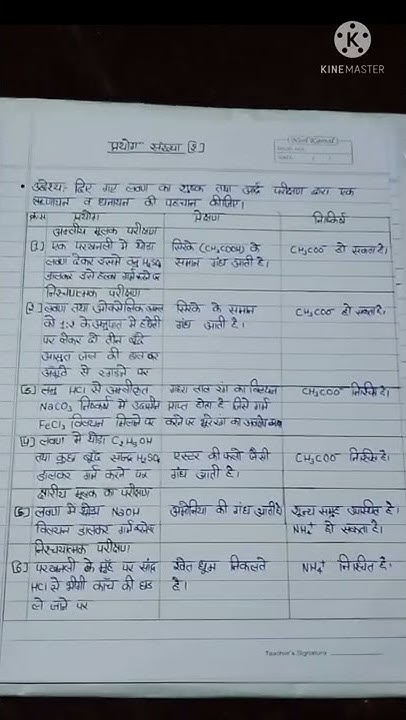 KINEMASTER
प्रयोग संख्या [2]
• उद्देश्य:- दिए गए लवण का शुष्क तथा आर्द्र परीक्षण द्वारा एक
ऋणायन व धनायन की पहचान कीजिए।
क्रम प्रयोग प्रेक्षण निष्कर्ष
अम्लीय मूलक परीक्षण
(1) एक परखनली में थोड़ा सिरके (CH3COOH) के CH3COO⁻ हो सकता है।
लवण लेकर उसमें तनु H2SO4 समान गंध आती है।
डालकर उसे हल्का गर्म करने पर
निश्चयात्मक परीक्षण
[2] लवण तथा ऑक्सेलिक अम्ल सिरके के समान CH3COO⁻ हो सकता है।
को 1:2 के अनुपात में हथेली गंध आती है।
पर लेकर दो तीन बूँदें
आसुत जल की डालकर
अंगूठे से रगड़ने पर
(3) तनु HCl से अम्लीकृत गहरा लाल रंग का विलयन CH3COO⁻ निश्चित है।
NaCO3 निष्कर्ष में उदासीन प्राप्त होता है जिसे गर्म
FeCl3 विलयन मिलाने पर करने पर भूरे रंग का अवक्षेप
(4) लवण में थोड़ा C2H5OH
तथा कुछ बूँद सान्द्र H2SO4 एस्टर की फलों जैसी CH3COO⁻ निश्चित है।
डालकर गर्म करने पर गंध आती है।
क्षारीय मूलक का परीक्षण
(5) लवण में थोड़ा NaOH अमोनिया की गंध आती है। शून्य समूह उपस्थित है।
विलयन डालकर गर्म करने NH4⁺ हो सकता है।
निश्चयात्मक परीक्षण
[6] परखनली के मुँह पर सांद्र श्वेत धूम्र निकलते NH4⁺ निश्चित है।
HCl से भीगी काँच की छड़ है।
ले जाने पर
Teacher's Signature